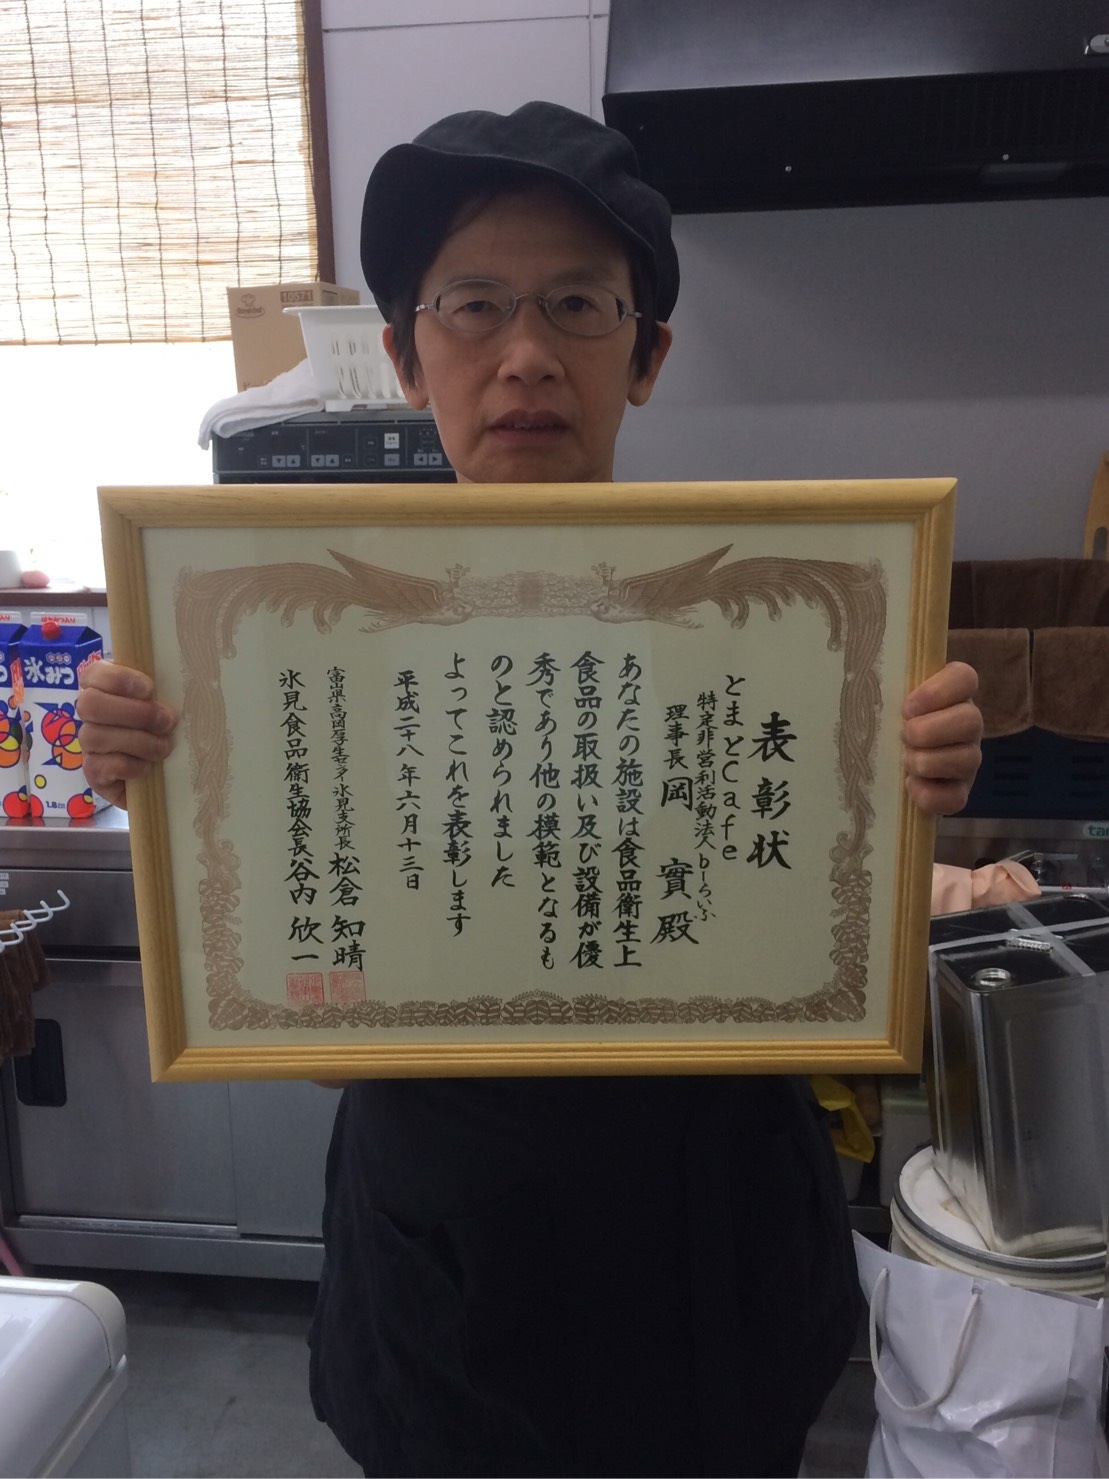 表彰状
とまとCafe
特定非営利活動法人b-らいふ
理事長 岡 實 殿
あなたの施設は食品衛生上
食品の取扱い及び設備が優
秀であり他の模範となるも
のと認められました
よってこれを表彰します
平成二十八年六月十三日
富山県高岡厚生センター氷見支所長 松倉 知晴
氷見食品衛生協会長 谷内 欣一
氷みつ
1.8
10571